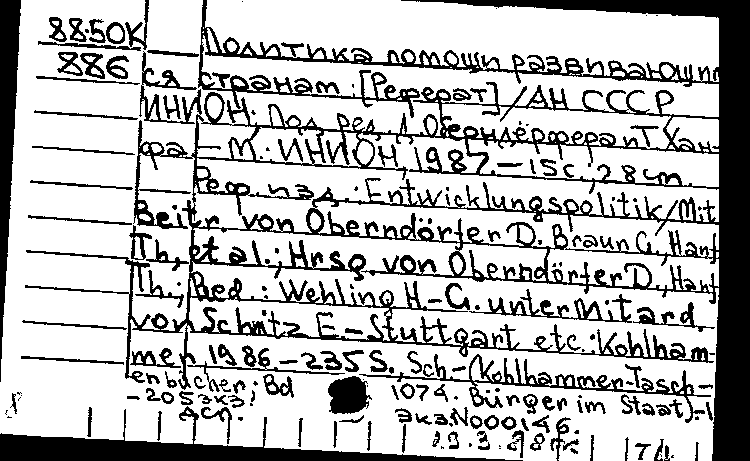 88.50К Политика помощи развивающим
886 ся странам: [Реферат] / АН СССР
ИНИОН; Под ред. Д. Оберндёрфера и Т. Хан-
фа. - М.: ИНИОН, 1987. - 15 с.; 28 cm.
Реф. изд.: Entwicklungspolitik/Mit
Beitr. von Oberndörfer D., Braun G., Hanf
Th., et al.; Hrsg. von Oberndörfer D., Hanf
Th.; Red.: Wehling H.-G. unter Mitard.
von Schmitz E. - Stuttgart etc.: Kohlham-
mer, 1986. - 235 S., Sch. - (Kohlhammer-Tasch-
enbücher; Bd 1074. Bürger im Staat) -
- 205 экз; экз. N 000146.
ДСП.